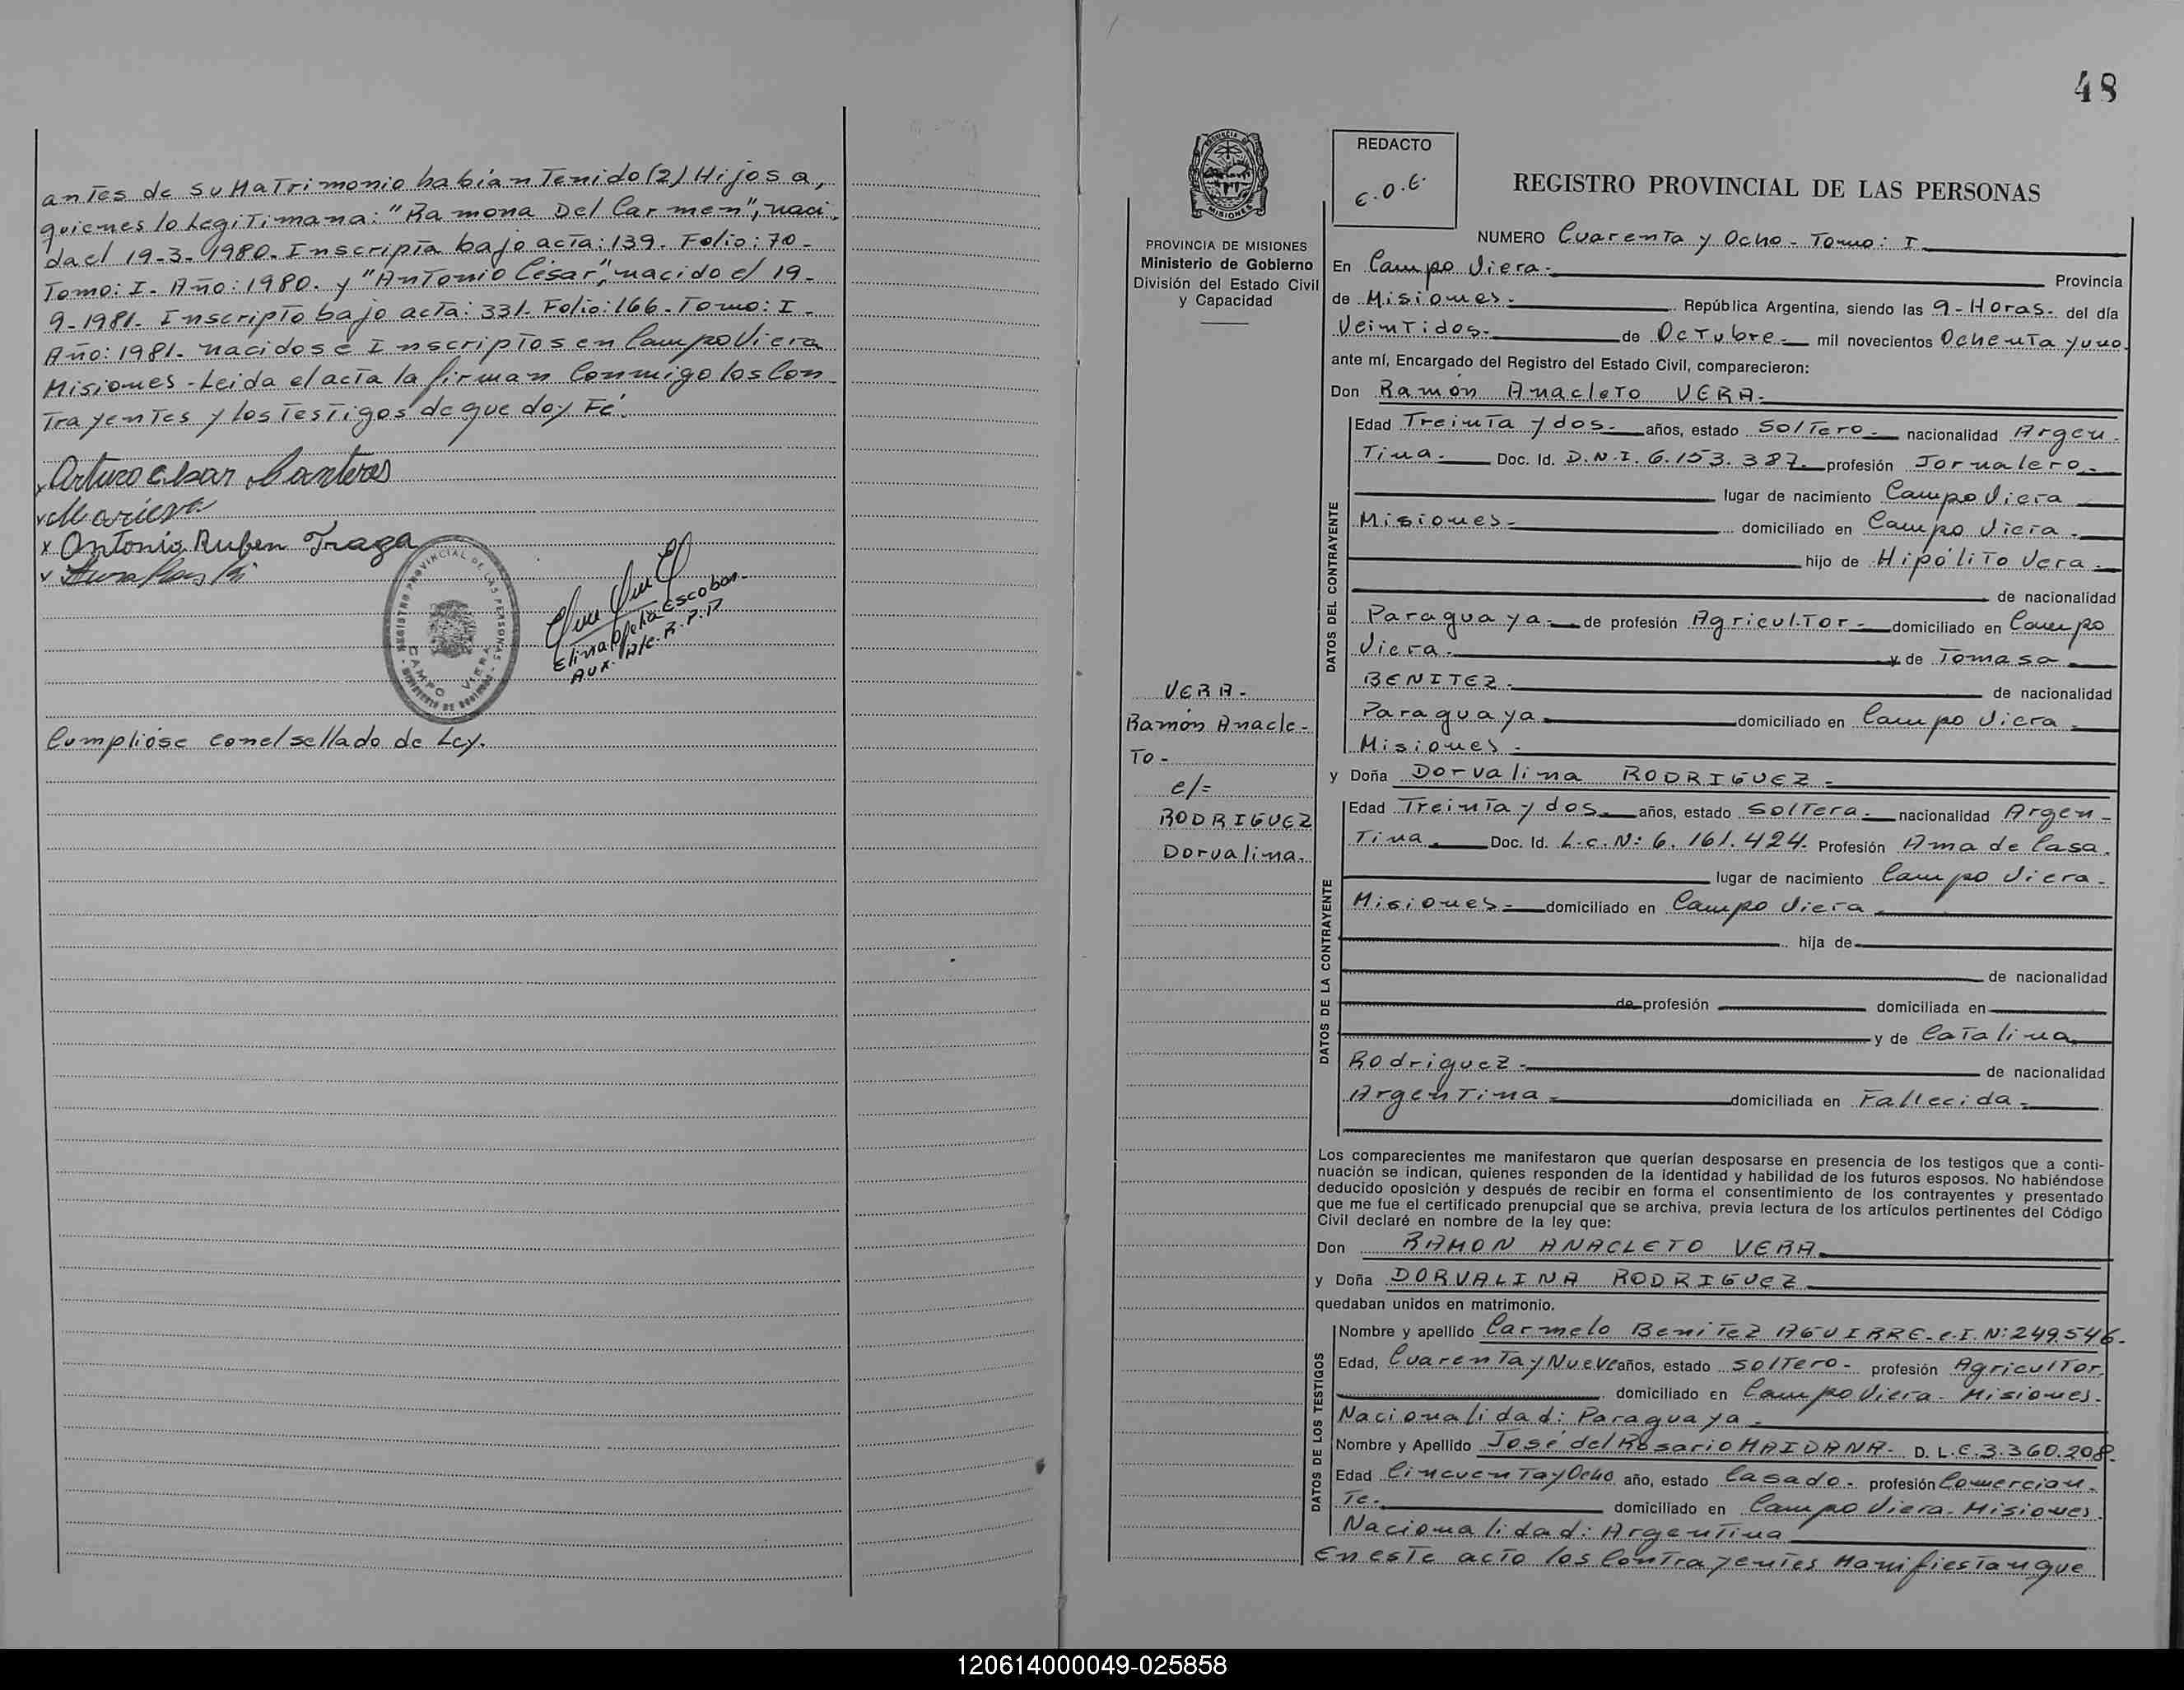 antes de su Matrimonio habían Tenido (2) Hijos a,
quienes lo Legitimana: "Ramona Del Carmen", naci-
da el 19-3-1980. Inscripta bajo acta: 139. Folio: 70-
Tomo: I. Año: 1980. y "Antonio César", nacido el 19-
9-1981. Inscripto bajo acta: 331. Folio: 166. Tomo: I-
Año: 1981. nacidos e Inscriptos en Campo Viera
Misiones - Leida el acta la firman Conmigo los Con-
Trayentes y los Testigos de que doy Fé.
Arturo Cesar
x Antonio Ruben Fraga
REGISTRO PROVINCIAL DE LAS PERSONAS
CAMPO VIERA
Escobar
Aux. R.P.P
Cumplióse con el sellado de Ley.
48
PROVINCIA DE MISIONES
Ministerio de Gobierno
División del Estado Civil
y Capacidad
VERA-
Ramón Anacle-
To-
c/=
RODRIGUEZ
Dorvalina.
REDACTO
E.O.E.
REGISTRO PROVINCIAL DE LAS PERSONAS
NUMERO Cuarenta y Ocho - Tomo: I
En Campo Viera- Provincia
de Misiones- República Argentina, siendo las 9-Horas- del día
Veintidos- de Octubre- mil novecientos Ochenta y uno.
ante mí, Encargado del Registro del Estado Civil, comparecieron:
Don Ramón Anacleto VERA-
DATOS DEL CONTRAYENTE
Edad Treinta y dos- años, estado Soltero- nacionalidad Argen-
Tina- Doc. Id. D.N.I. 6.153.387- profesión Jornalero-
lugar de nacimiento Campo Viera
Misiones- domiciliado en Campo Viera-
hijo de Hipólito Vera-
de nacionalidad
Paraguaya- de profesión Agricultor- domiciliado en Campo
Viera- y de Tomasa
BENITEZ- de nacionalidad
Paraguaya domiciliado en Campo Viera-
Misiones-
y Doña Dorvalina RODRIGUEZ-
DATOS DE LA CONTRAYENTE
Edad Treinta y dos- años, estado Soltera- nacionalidad Argen-
Tina- Doc. Id. L.c.N: 6.161.424- Profesión Ama de Casa.
lugar de nacimiento Campo Viera-
Misiones- domiciliado en Campo Viera
hija de
de nacionalidad
de profesión domiciliada en
y de Catalina
Rodriguez- de nacionalidad
Argentina- domiciliada en Fallecida-
Los comparecientes me manifestaron que querían desposarse en presencia de los testigos que a conti-
nuación se indican, quienes responden de la identidad y habilidad de los futuros esposos. No habiéndose
deducido oposición y después de recibir en forma el consentimiento de los contrayentes y presentado
que me fue el certificado prenupcial que se archiva, previa lectura de los artículos pertinentes del Código
Civil declaré en nombre de la ley que:
Don RAMON ANACLETO VERA
y Doña DORVALINA RODRIGUEZ
quedaban unidos en matrimonio.
DATOS DE LOS TESTIGOS
Nombre y apellido Carmelo Benitez AGUIRRE-c.I.N: 249.546-
Edad, Cuarenta y Nueve años, estado soltero- profesión Agricultor
domiciliado en Campo Viera- Misiones-
Nacionalidad: Paraguaya-
Nombre y Apellido José del Rosario MAIDANA- D. L.E.3.360.208-
Edad Cincuenta y Ocho año, estado Casado- profesión Comercian-
Te- domiciliado en Campo Viera-Misiones
Nacionalidad: Argentina
En este acto los Contrayentes Manifiestan que
120614000049-025858